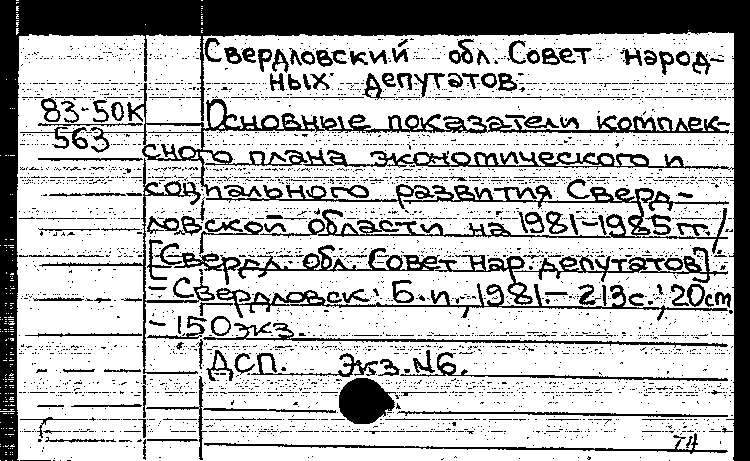 Свердловский обл. Совет народ-
ных депутатов.
83-50К
563
Основные показатели комплек-
сного плана экономического и
социального развития Сверд-
ловской области на 1981-1985 гг./
[Свердл. обл. Совет нар. депутатов].
- Свердловск: Б.и., 1981.- 213с.; 20cm.
- 150экз.
ДСП. Экз. №6.